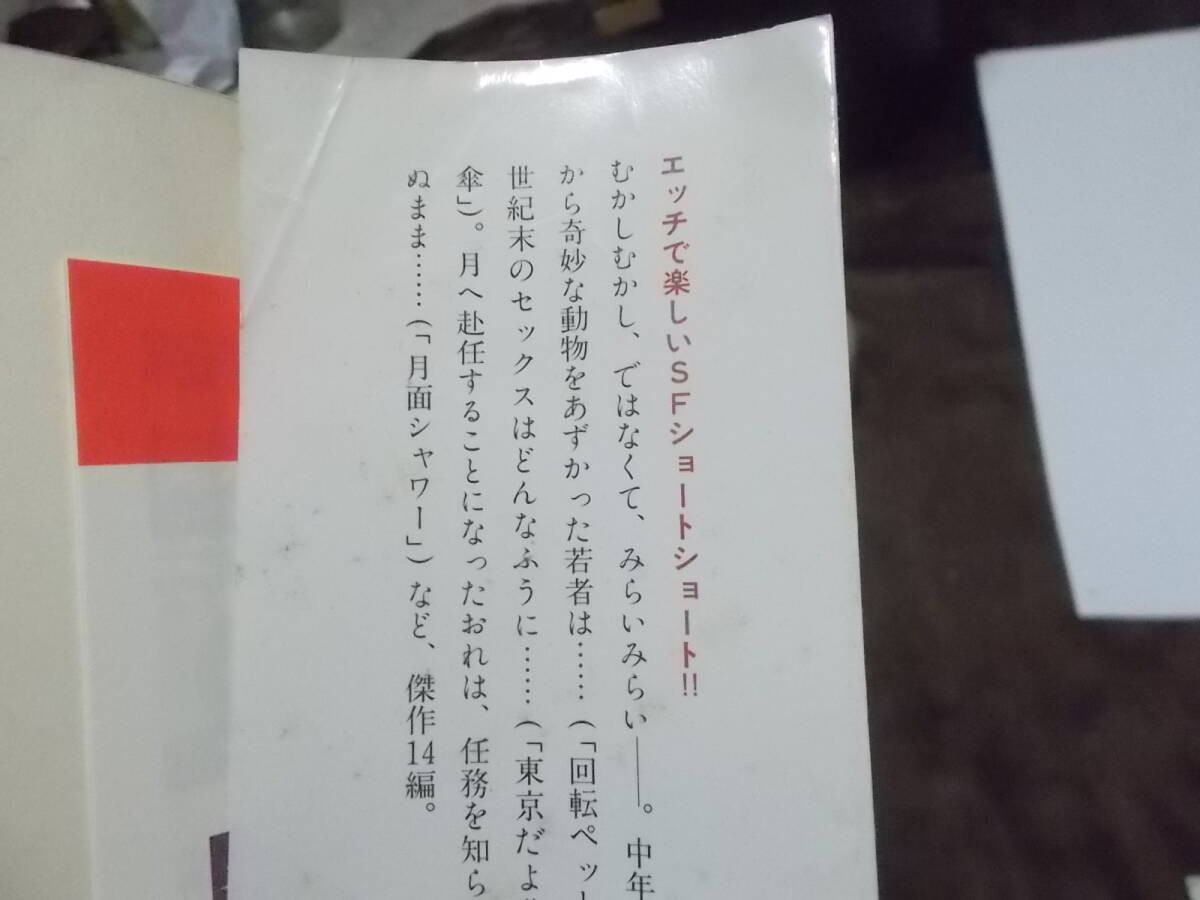 エッチで楽しいSFショートショート!!
むかしむかし、ではなくて、みらいみらい――。中年
から奇妙な動物をあずかった若者は……(「回転ペット
世紀末のセックスはどんなふうに……(「東京だよ
傘」)。月へ赴任することになったおれは、任務を知ら
ぬまま……(「月面シャワー」)など、傑作14編。